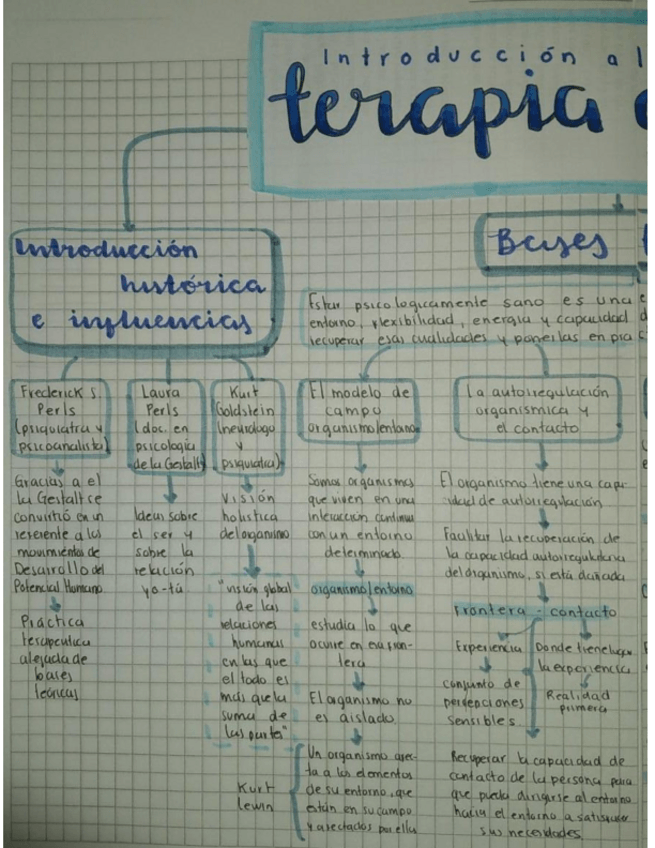 Introducción a l
terapia
Introducción
histórica
e influencias
Bases
Estar psicologicamente sano es una
entorno, flexibilidad, energía y capacidad
recuperar esas cualidades y ponerlas en
Frederick S.
Perls
(psiquiatra y
psicoanalista)
Gracias a el
la Gestalt se
convirtió en un
referente a los
movimientos de
Desarrollo del
Potencial Humano
Práctica
terapeutica
alejada de
bases
teóricas
Laura
Perls
(doc. en
psicología
de la Gestalt)
Ideas sobre
el ser y
sobre la
relación
yo-tú
Kurt
Goldstein
(neurólogo
y
psiquiatra)
Visión
holistica
del organismo
"visión global
de las
relaciones
humanas
en las que
el todo es
más que la
suma de
las partes"
Kurt
Lewin
El modelo de
campo
organismo/entorno
Somos organismos
que viven en una
interacción continua
con un entorno
determinado.
organismo/entorno
estudia lo que
ocurre en esa fron-
tera
El organismo no
es aislado
Un organismo afec-
ta a los elementos
de su entorno, que
están en su campo
y afectados por ella
La autorregulación
organísmica y
el contacto
El organismo tiene una capa-
cidad de autorregulación
Facilitar la recuperación de
la capacidad autorreguladora
del organismo, si está dañada
Frontera - contacto
Experiencia
conjunto de
percepciones
sensibles
Donde tiene lugar
la experiencia
Realidad
primera
Recuperar la capacidad de
contacto de la persona para
que pueda dirigirse al entorno
hacia el entorno a satisfacer
sus necesidades